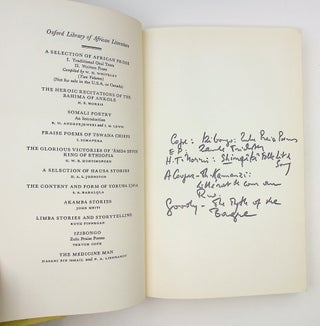 Oxford Library of African Literature
A SELECTION OF AFRICAN PROSE
I. Traditional Oral Texts
II. Written Prose
Compiled by W. H. WHITELEY
(Two Volumes)
(Not for sale in the U.S.A. or Canada)
THE HEROIC RECITATIONS OF THE
BAHIMA OF ANKOLE
H. F. MORRIS
SOMALI POETRY
An Introduction
B. W. ANDRZEJEWSKI and I. M. LEWIS
PRAISE POEMS OF TSWANA CHIEFS
I. SCHAPERA
THE GLORIOUS VICTORIES OF 'ĀMDA ṢEYON
KING OF ETHIOPIA
G. W. B. HUNTINGFORD
A SELECTION OF HAUSA STORIES
H. A. S. JOHNSTON
THE CONTENT AND FORM OF YORUBA IJALA
S. A. BABALỌLA
AKAMBA STORIES
JOHN MBITI
LIMBA STORIES AND STORYTELLING
RUTH FINNEGAN
IZIBONGO
Zulu Praise Poems
TREVOR COPE
THE MEDICINE MAN
HASANI BIN ISMAIL and P. A. LIENHARDT
Cope: Izibongo: Zulu Praise Poems
E P: Zande Trickster
H. F. Morris:
Song
A Coupez Th. Kamanzi:
Littérature de cour au
Rw.
Goody - The Myth of the
Bagre